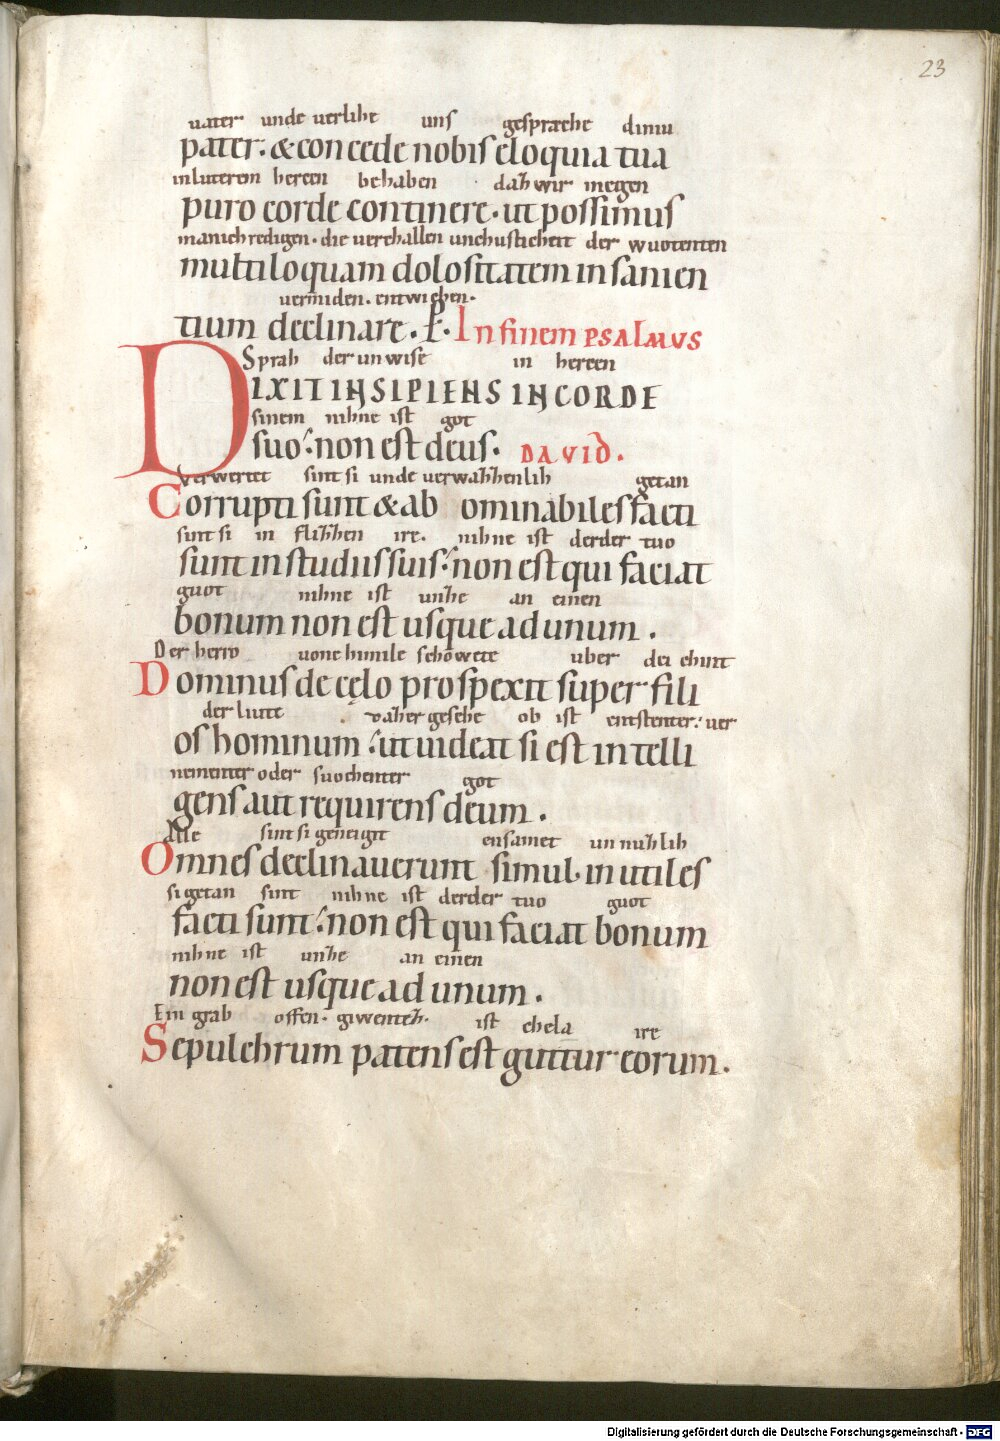 23
uater unde uerlihe uns gespræche diniu
pater· & concede nobis eloquia tua
inluterem hercen behaben daz wir megen
puro corde continere· ut possimus
manich redigen· die uerchallen unchusticheit der wuotenten
multiloquam dolositatem insanien
uermiden· entwichen·
tium declinare. P· In finem PSALMUS
Sprah der unwise in hercen
DIXIT INSIPIENS IN CORDE
sinem nihne ist got
suo· non est deus· DAVID.
Verwertet sint si unde uerwazzenlih getan
Corrupti sunt & ab ominabiles facti
sint si in flizzen ire. nihne ist derder tuo
sunt in studiis suis· non est qui faciat
guot nihne ist unze an einen
bonum non est usque ad unum .
Der herro uone himile schowete uber dei chint
Dominus de cęlo prospexit super fili
der liute daz er gesehe ob ist entstenter· uer
os hominum · ut uideat si est intelli
nementer oder suochenter got
gens aut requirens deum .
Alle sint si geneigit ensamet unnuzlih
Omnes declinauerunt simul· inutiles
si getan sint nihne ist derder tuo guot
facti sunt· non est qui faciat bonum
nihne ist unze an einen
non est usque ad unum .
Ein grab offen· giwentez· ist chela ire
Sepulchrum patens est guttur eorum.
Digitalisierung gefördert durch die Deutsche Forschungsgemeinschaft - DFG